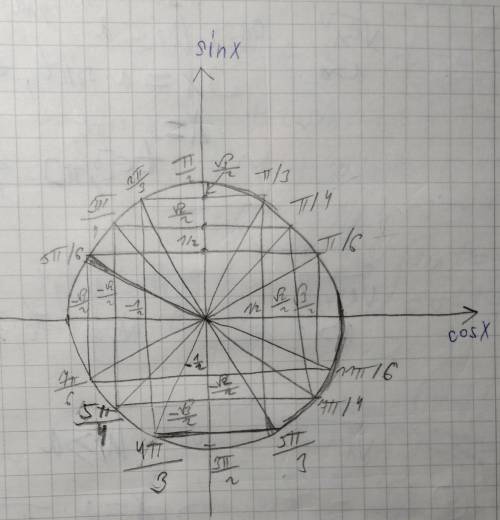 sinx
π/2
√3/2
2π/3
π/3
3π/
√2/2
π/4
1/2
π/6
5π/6
-√3/2
-√2/2
-1/2
1/2
√2/2
√3/2
cosx
-1/2
7π/6
11π/6
-√2/2
5π/4
-√3/2
7π/4
4π/3
3π/2
5π/3